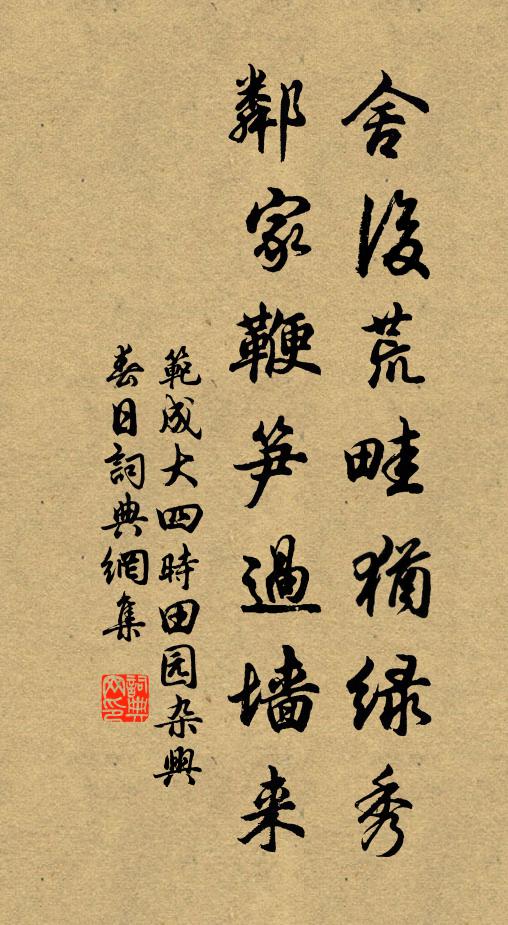 舍後荒畦猶绿秀
鄰家鞭笋過墙来
範成大四時田园杂興
春日詞典網集
詞典網印